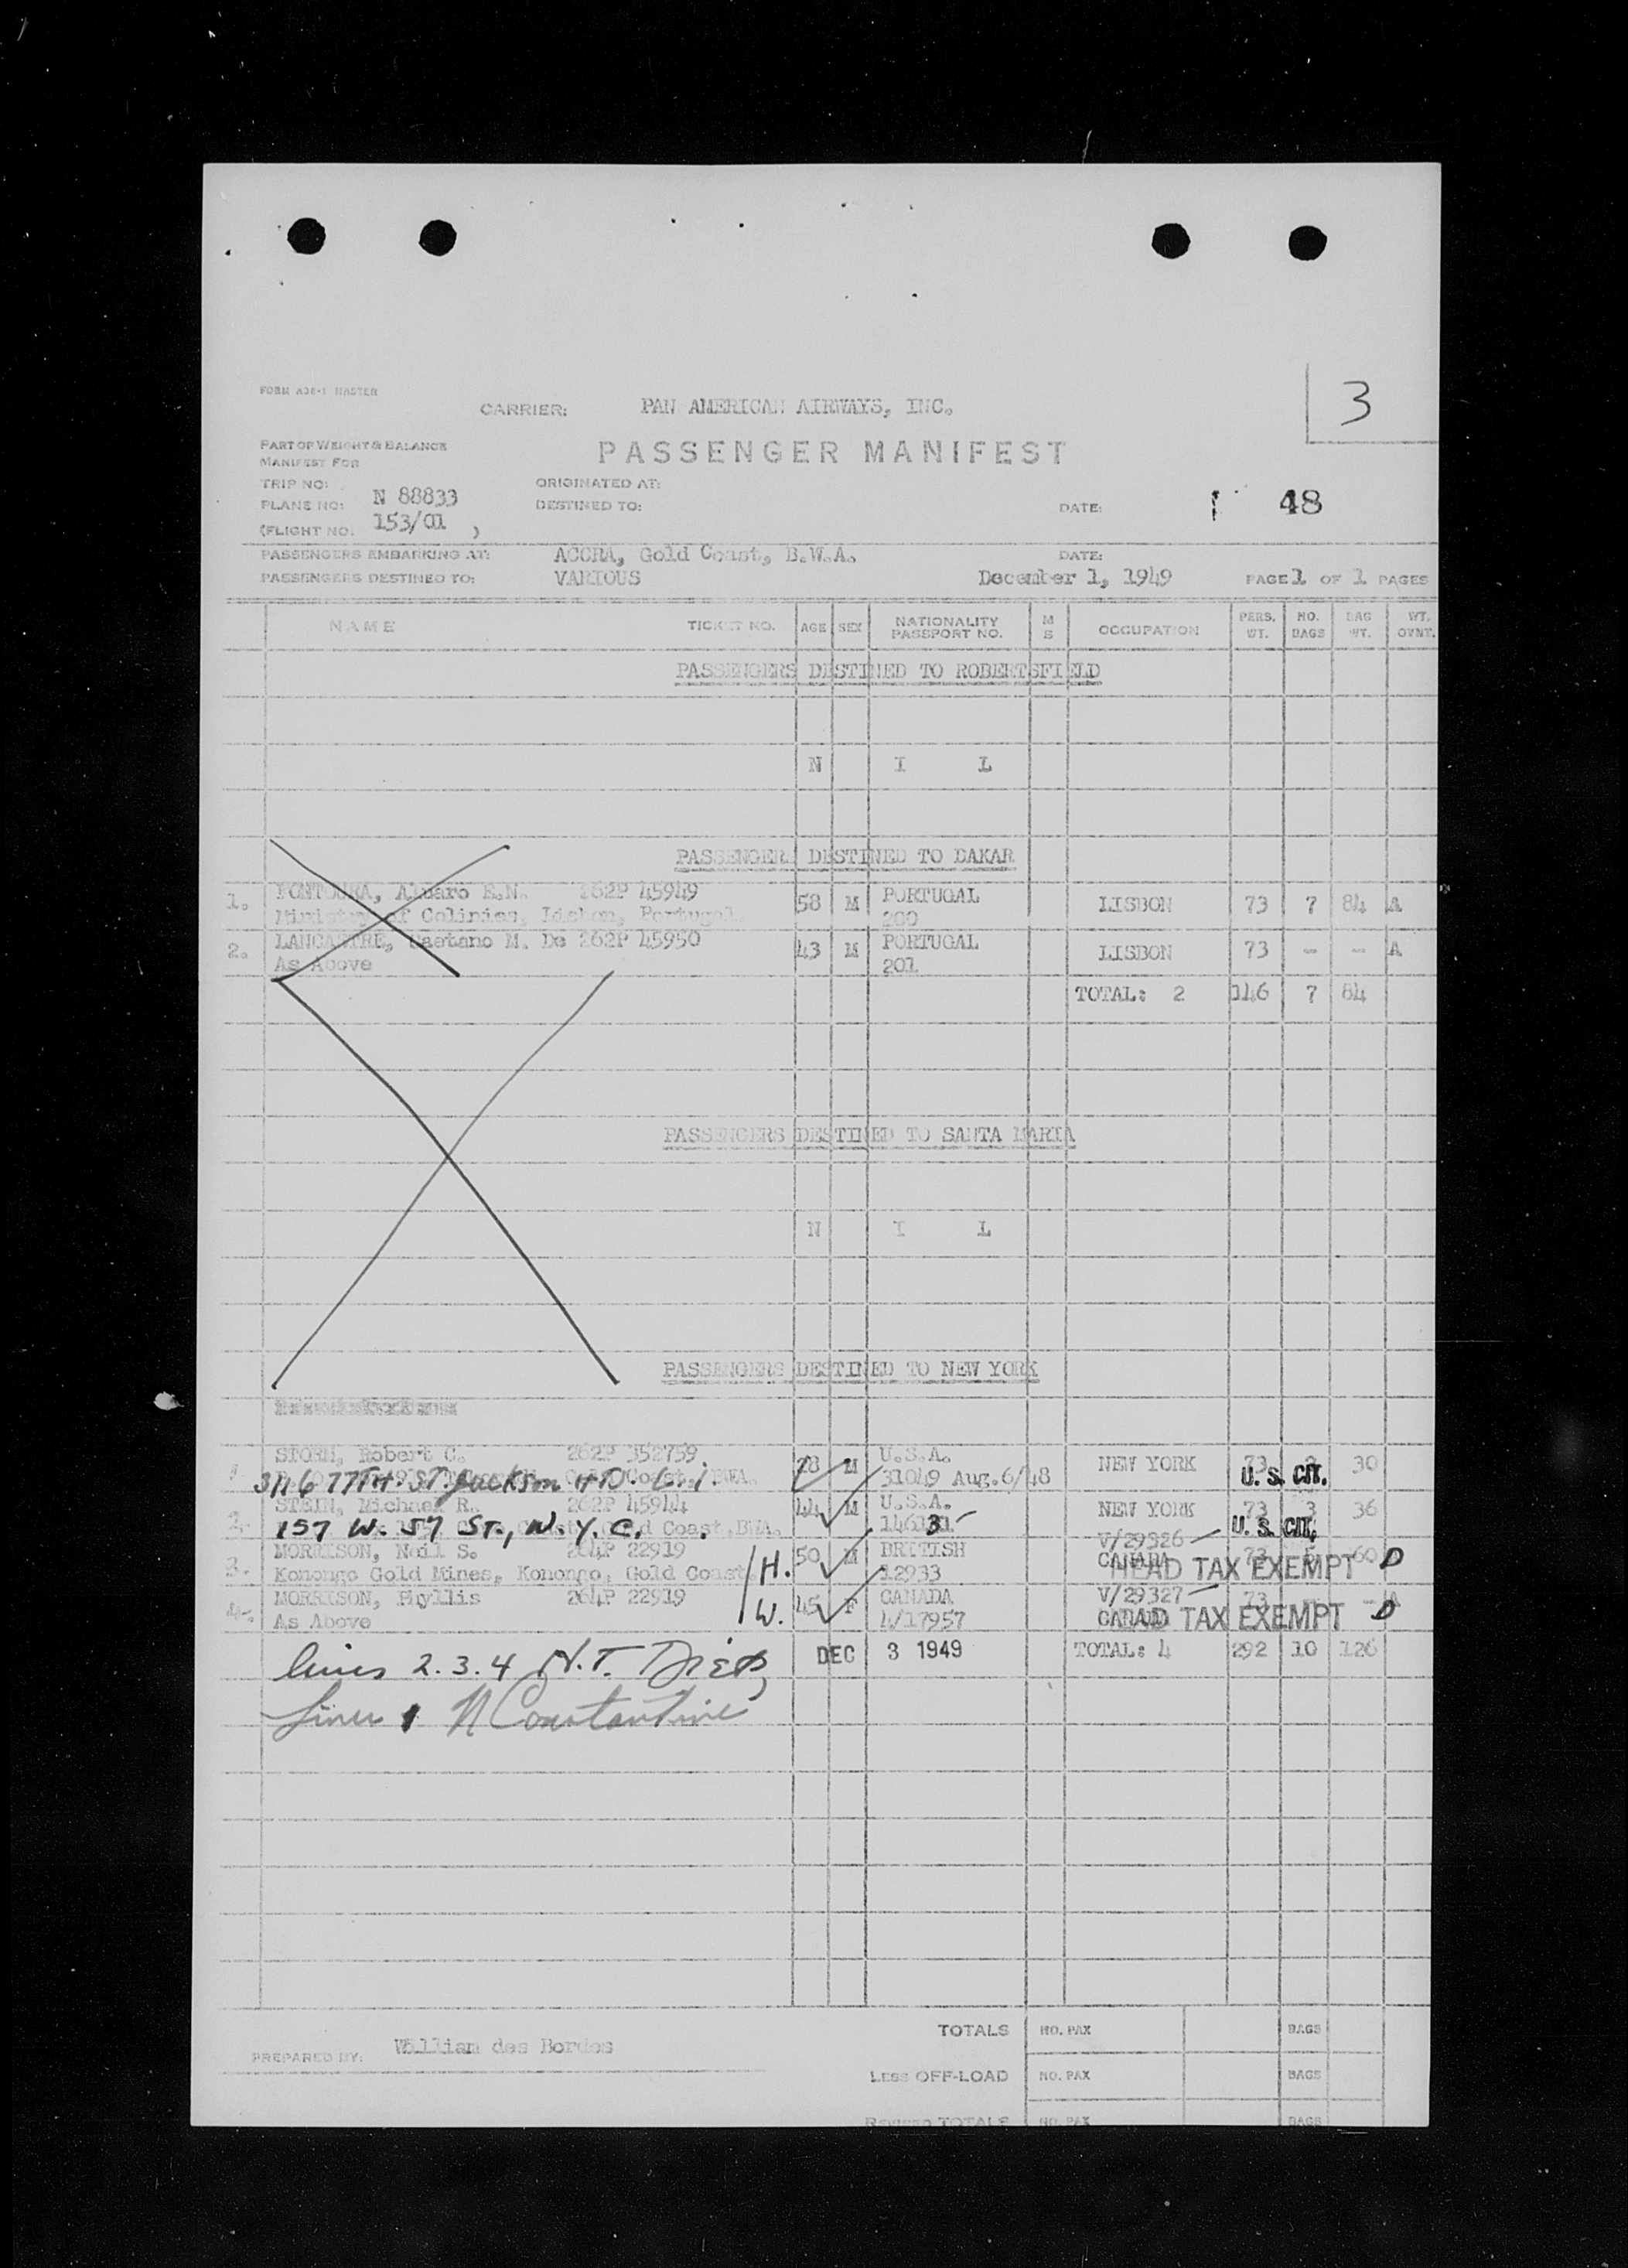 3
FORM A36-1 MASTER
CARRIER: PAN AMERICAN AIRWAYS, INC.
PART OF WEIGHT & BALANCE
MANIFEST FOR
PASSENGER MANIFEST
TRIP NO:
ORIGINATED AT:
PLANE NO: N 88833
DESTINED TO:
DATE: 48
(FLIGHT NO. 153/01 )
PASSENGERS EMBARKING AT: ACCRA, Gold Coast, B.W.A. DATE:
PASSENGERS DESTINED TO: VARIOUS December 1, 1949 PAGE 1 OF 1 PAGES
NAME TICKET NO. AGE SEX NATIONALITY PASSPORT NO. M S OCCUPATION PERS. WT. NO. BAGS BAG WT. WT. OVNT.
PASSENGERS DESTINED TO ROBERTSFIELD
N I L
PASSENGERS DESTINED TO DAKAR
1. FONTOURA, Alvaro E.N. 262P 45949 58 M PORTUGAL LISBON 73 7 84 A
Ministry of Colinies, Lisbon, Portugal 200
2. LANCASTRE, Caetano M. De 262P 45950 43 M PORTUGAL LISBON 73 - - A
As Above 201
TOTAL: 2 146 7 84
PASSENGERS DESTINED TO SANTA MARIA
N I L
PASSENGERS DESTINED TO NEW YORK
STORM, Robert C. 262P 352759 28 M U.S.A. NEW YORK 73 30
1 77TH. ST. Jackson HTD. L.I. 31049 Aug.6/48 U. S. CIT.
STEIN, Michael R. 262P 45944 44 M U.S.A. NEW YORK 73 3 36
2. 157 W. 57 ST., N.Y.C. Gold Coast, BWA. U. S. CIT.
MORRISON, Neil S. 264P 22919 H. 50 M BRITISH V/29326 73 60
3. Konongo Gold Mines, Konongo, Gold Coast 12933 CANADA HEAD TAX EXEMPT D
MORRISON, Phyllis 264P 22919 W. 45 F CANADA V/29327 73 - - A
4. As Above 4/17957 CANADA HEAD TAX EXEMPT D
DEC 3 1949 TOTAL: 4 292 10 126
lines 2.3.4 N.T. Diets
Lines 1 N Constantine
TOTALS NO. PAX BAGS
PREPARED BY: William des Bordes
LESS OFF-LOAD NO. PAX BAGS
REVISED TOTALS NO. PAX BAGS